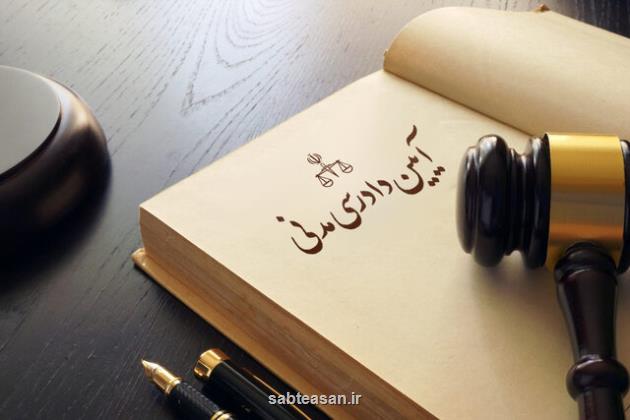 آیین دادرسی مدنی
sabteasan.ir